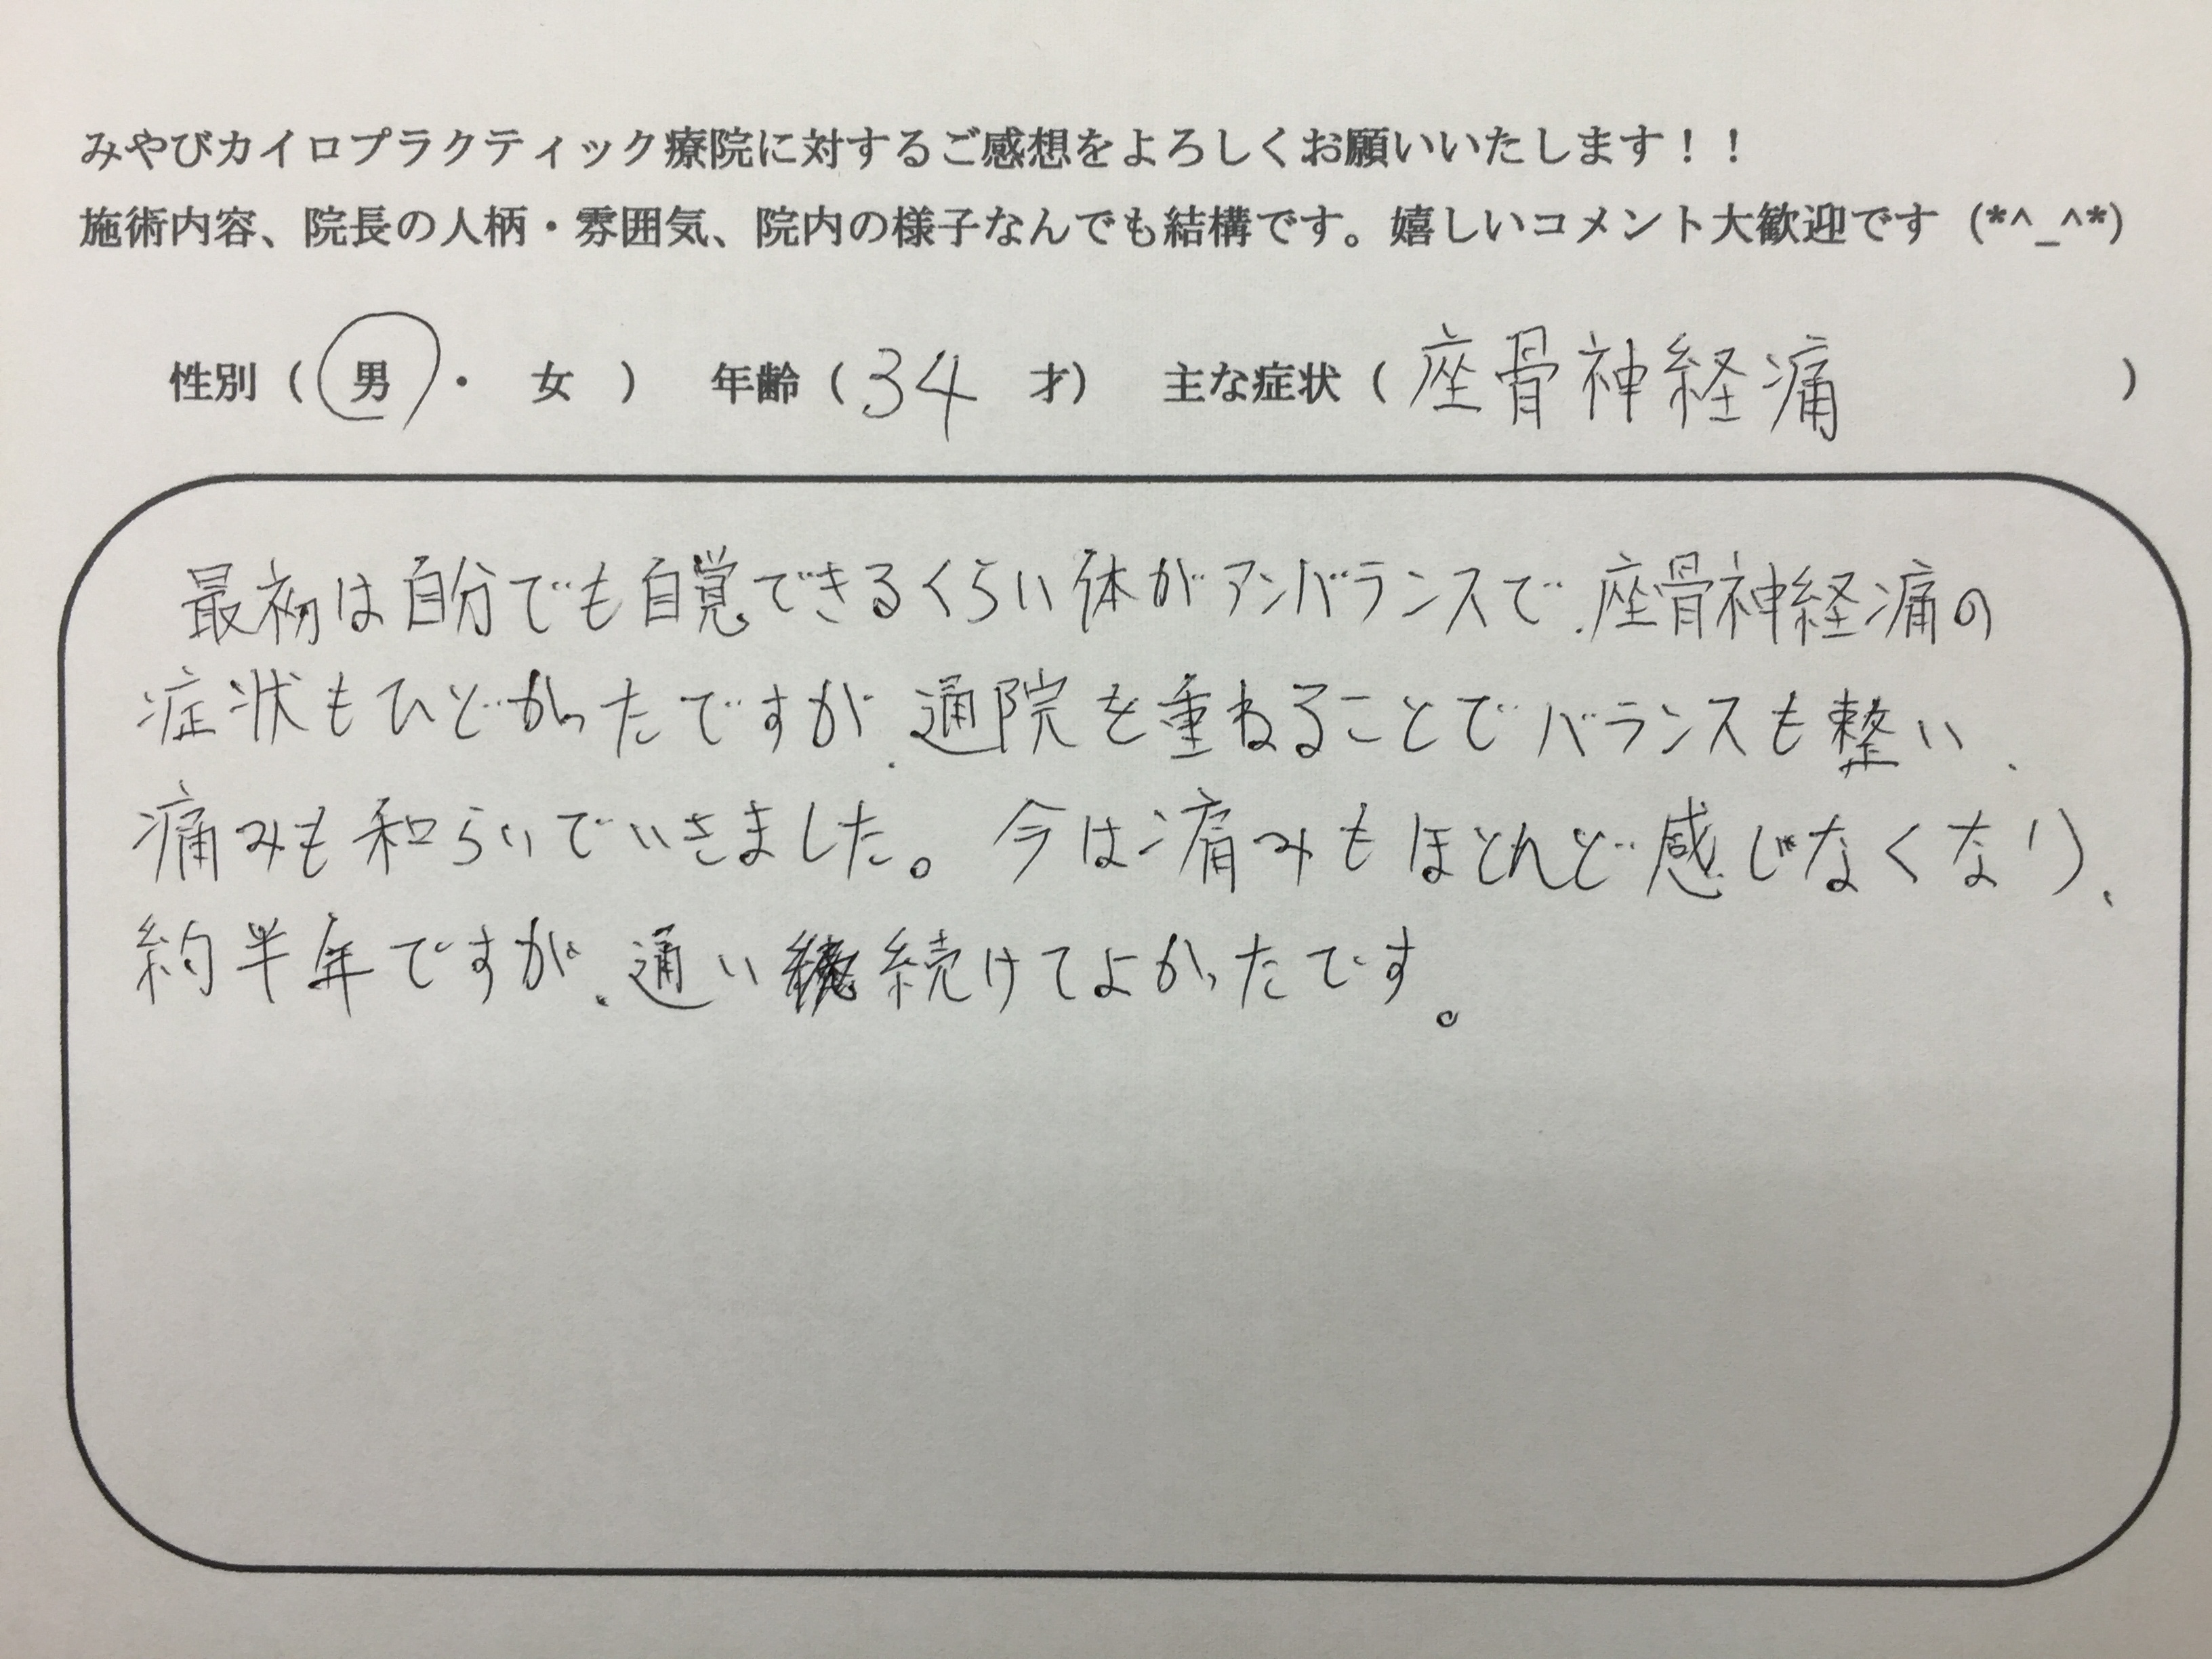 みやびカイロプラクティック療院に対するご感想をよろしくお願いいたします！！
施術内容、院長の人柄・雰囲気、院内の様子なんでも結構です。嬉しいコメント大歓迎です（*^_^*）
性別（ 男 ・ 女 ） 年齢（ 34 才） 主な症状（ 座骨神経痛 ）
最初は自分でも自覚できるくらい体がアンバランスで、座骨神経痛の
症状もひどかったですが、通院を重ねることでバランスも整い、
痛みも和らいでいきました。今は痛みもほとんど感じなくなり、
約半年ですが、通い続けてよかったです。